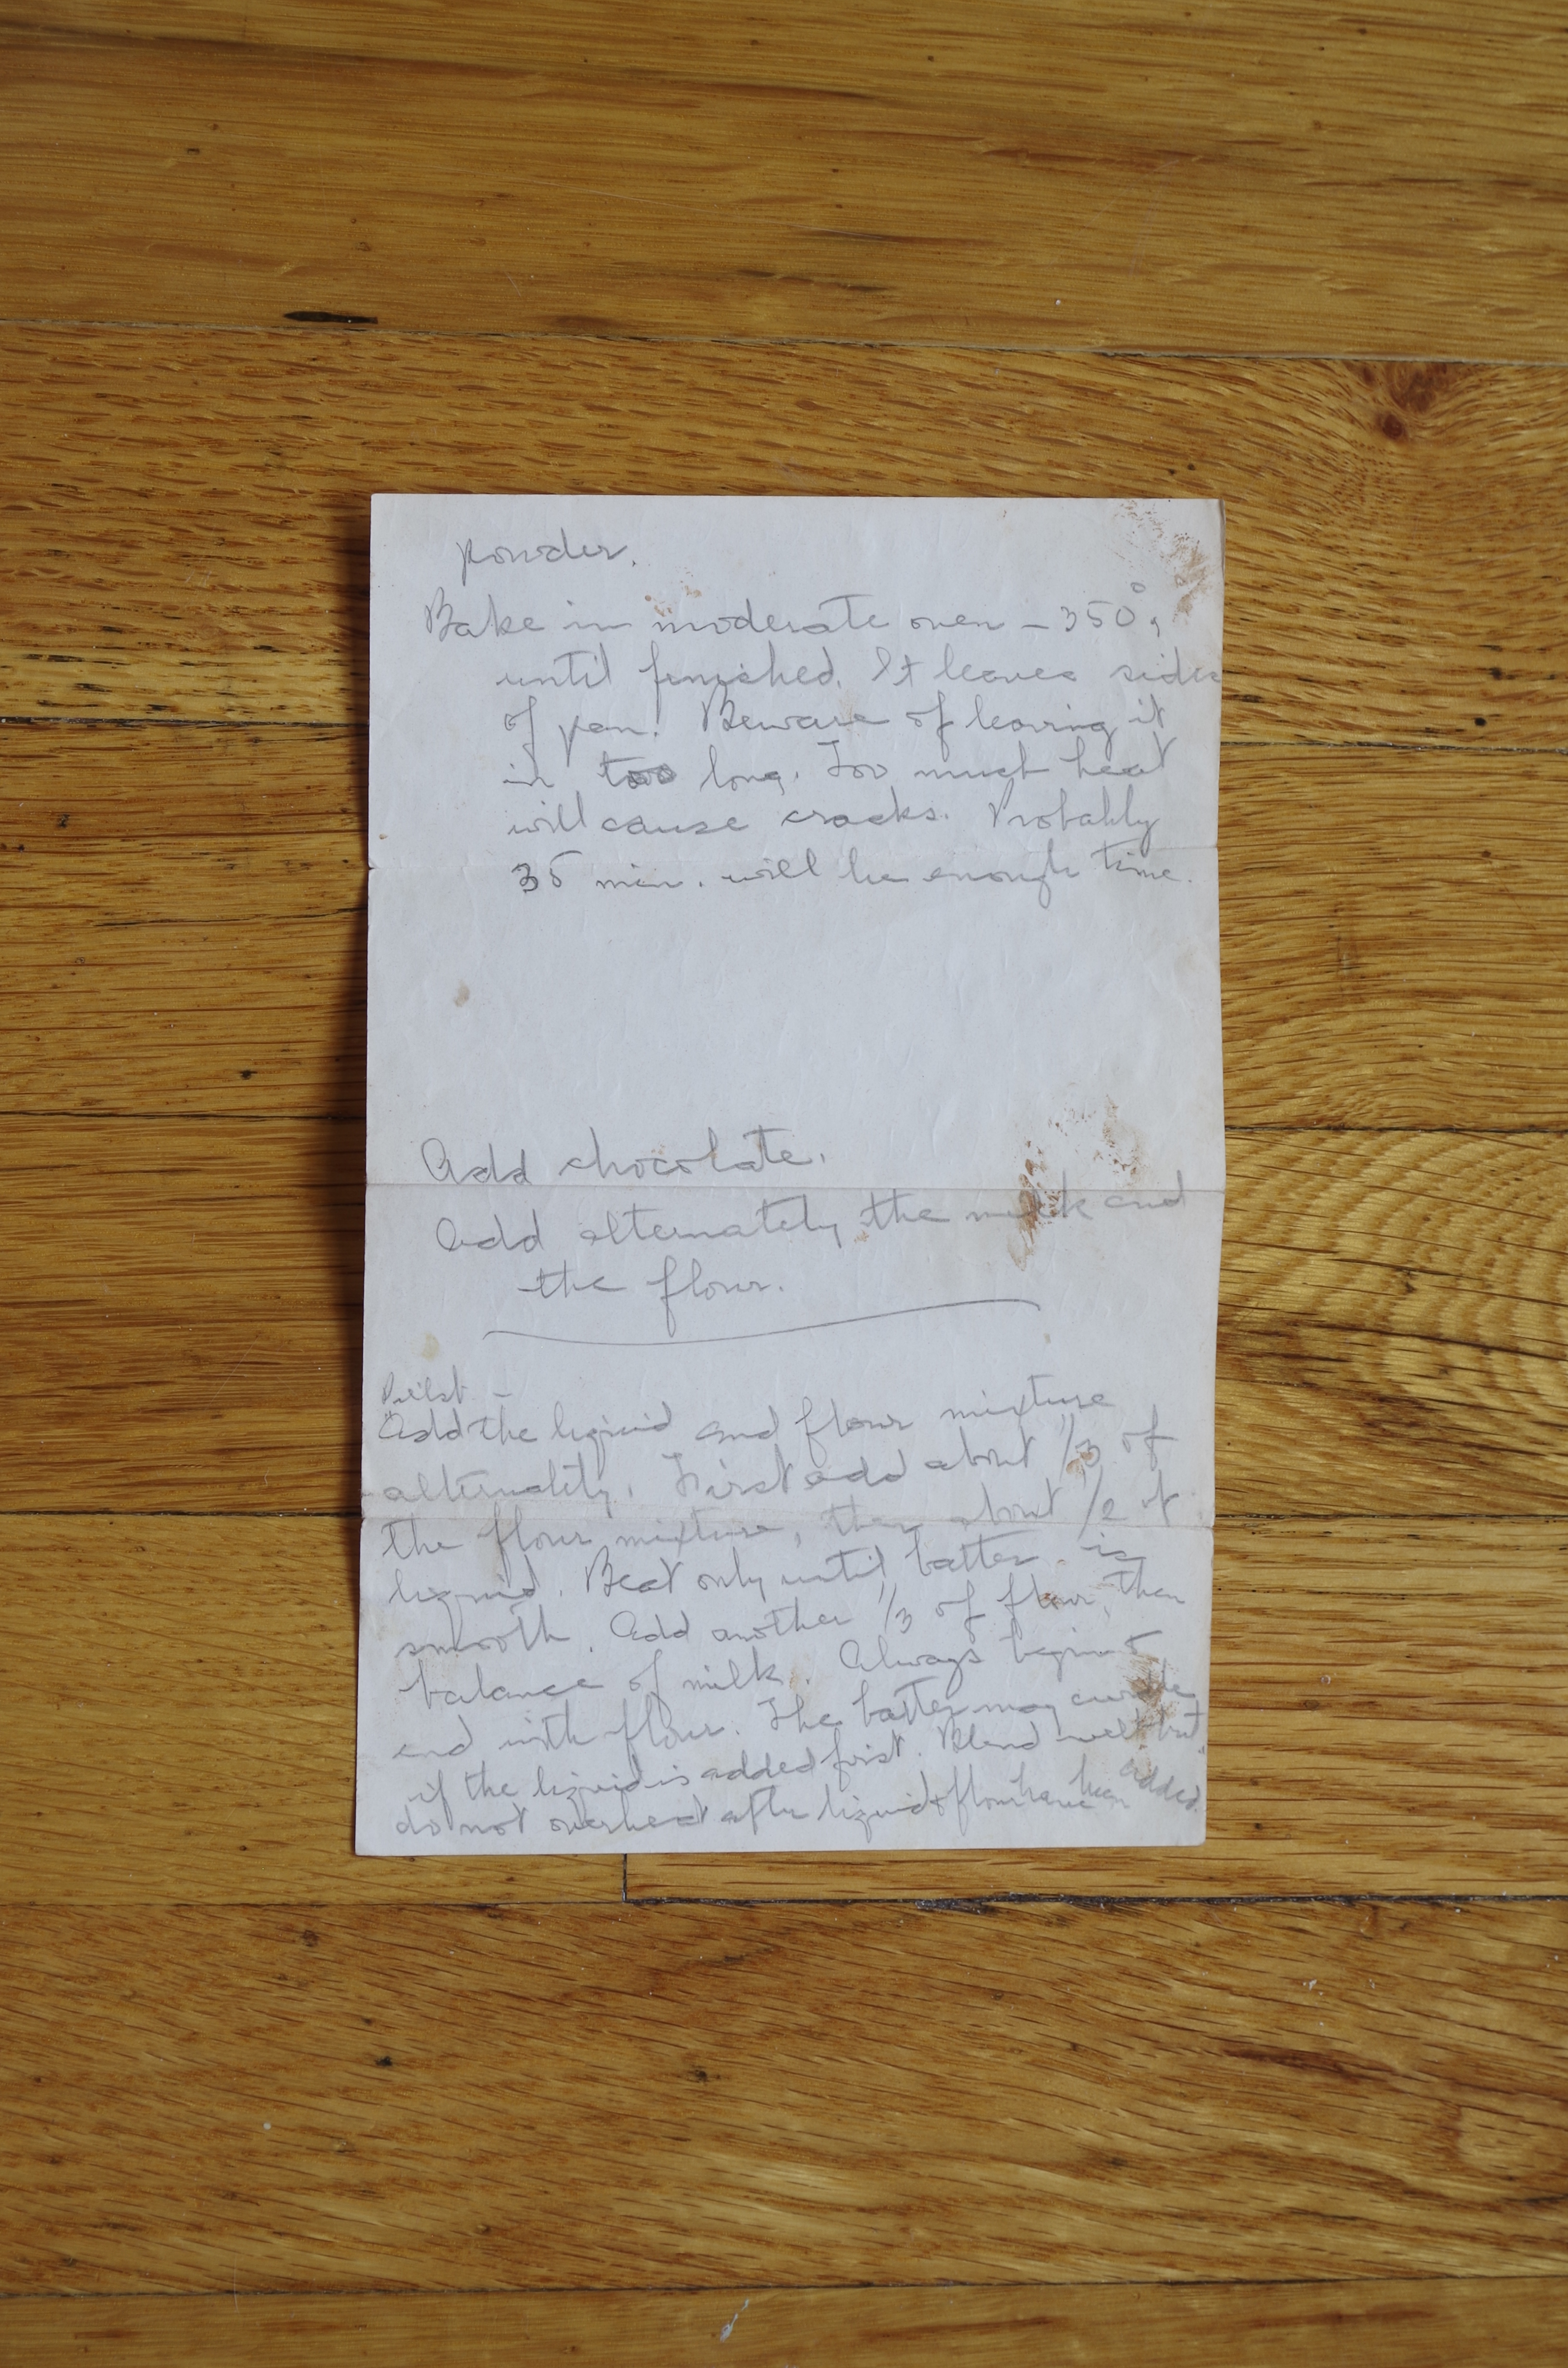 powder.
Bake in moderate oven - 350°,
until finished. It leaves sides
of pan! Beware of leaving it
in too long. Too much heat
will cause cracks. Probably
35 min. will be enough time.
Add chocolate.
Add alternately the milk and
the flour.
Add the liquid and flour mixture
alternately. First add about 1/3 of
the flour mixture, then about 1/2 of
liquid. Beat only until batter is
smooth. Add another 1/3 of flour, then
balance of milk. Always begin &
end with flour. The batter may curdle
if the liquid is added first. Blend well but
do not overbeat after liquid & flour have been added.